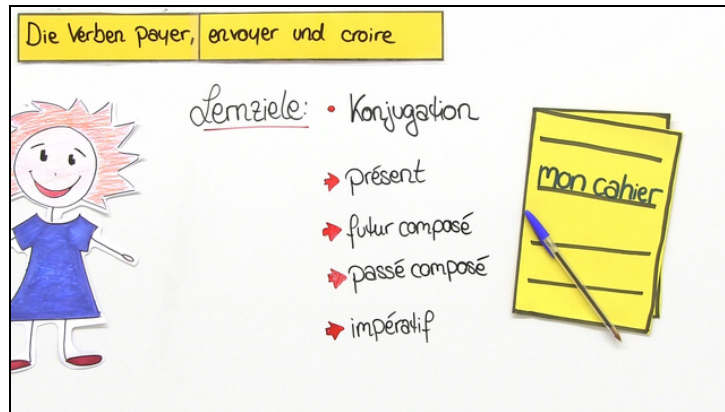 Die Verben payer, envoyer und croire
Lernziele: • Konjugation
présent
futur composé
passé composé
impératif
mon cahier